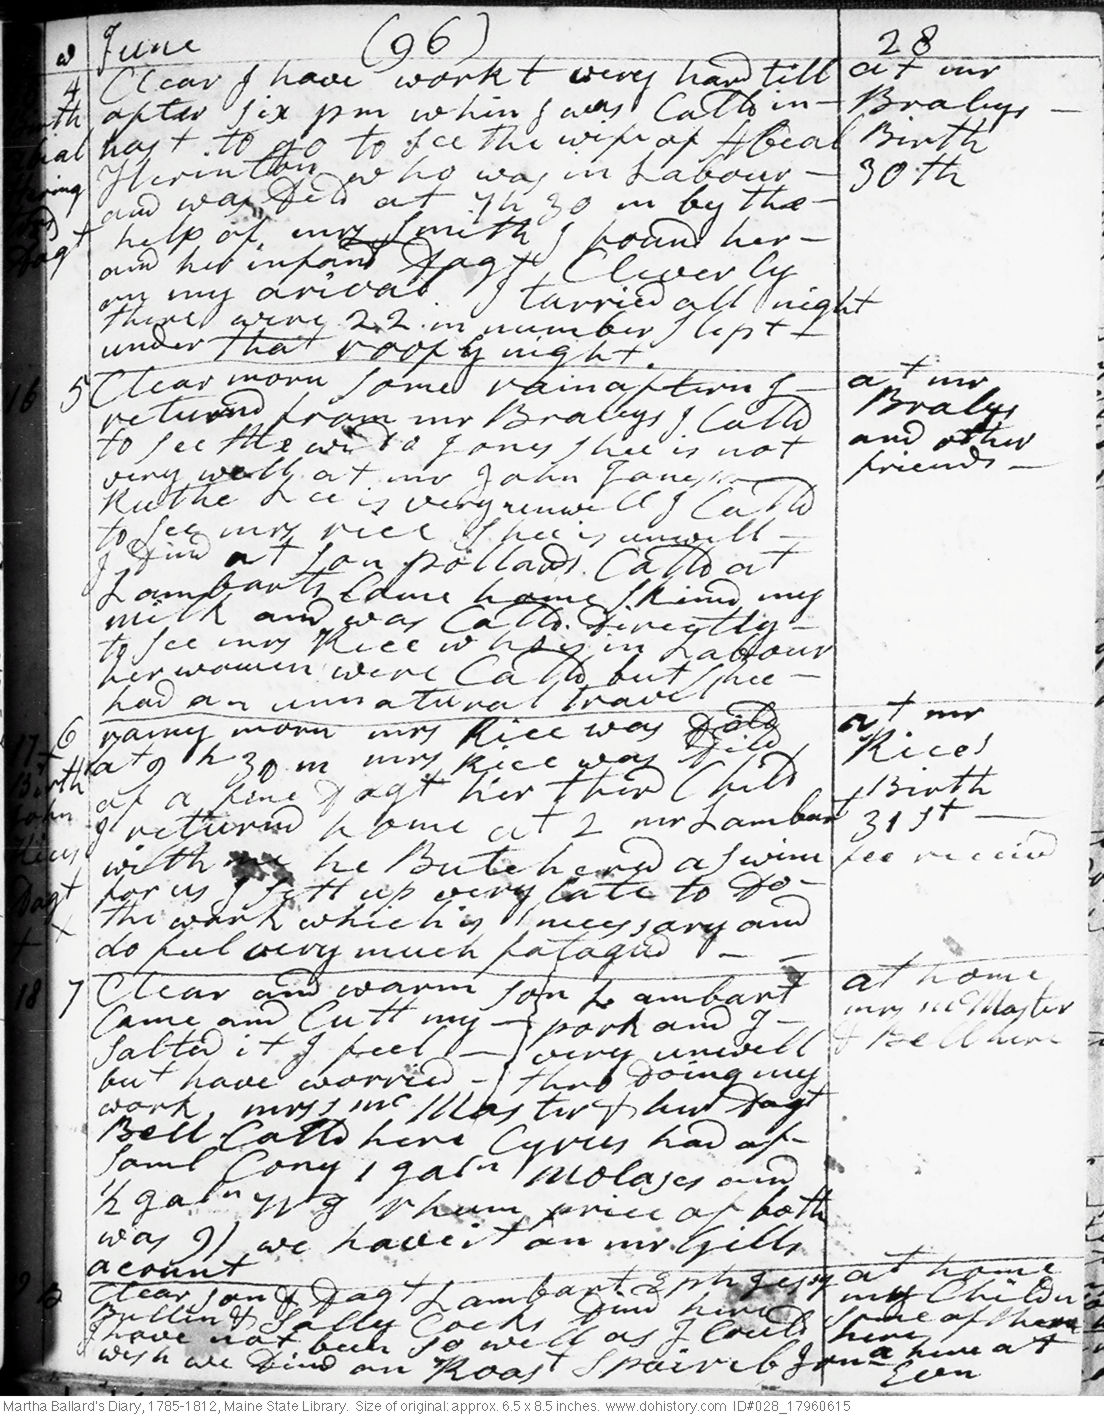 June (96) 28
4 Clear I have workt very hard till
after six pm when I was Calld in
hast to go to see the wife of Abeal
Herinton who was in Labour
and was Deld at 7h 30 m by the
help of mrs Smith I found her
and her infant Dagt Cleverly
on my arival I tarried all night
there were 22 in number slept
under that roof ye night.
at mr
Bralys
Birth
30th
Dagt
16 5 Clear morn some rain aftern I
returnd from mr Bralys I Calld
to see the wid Jones shee is not
very well at mr John Jones
Ruthe Lee is very unwell I Calld
to see mrs rice shee is unwell
I Dind at son pollads. Calld at
Lambarts Came home skimd my
milk and was Calld Directly
to see mrs Rice who is in Labour
her women were Calld but shee
had an unnatural travil
at mr
Bralys
and other
friends
17 6 rainy morn mrs Rice was Deld
at 9 h 30 m mrs Rice was Deld
of a fine Dagt her third Child
I returnd home at 2 mr Lambart
with me he Butcherd a swine
for us I sett up very late to Do
the work which is necessary and
do feel very much fatagud
at mr
Rices
Birth
31st
fee receivd
Birth
John
Rices
Dagt
18 7 Clear and warm son Lambart
Came and Cutt my pork and I
salted it I feel very unwell
but have worried thro Doing my
work, mrss mc Master & her Dagt
Bell Calld here Cyrus had of
Saml Cony 1 galn Molases and
1/2 galn W I Rhum price of both
was 9/ we have it on mr Gills
acount
at home
mrs mcMaster
& Bell here
Clear son & Dagt Lambart Eph Jesy
Bullin & Sally Cocks Dind here
I have not been so well as I Could
wish we Dind on Roast Spairib
at home
my Childn
some of them
here
here at
Even
Martha Ballard's Diary, 1785-1812, Maine State Library. Size of original: approx. 6.5 x 8.5 inches. www.dohistory.com ID#028_17960615